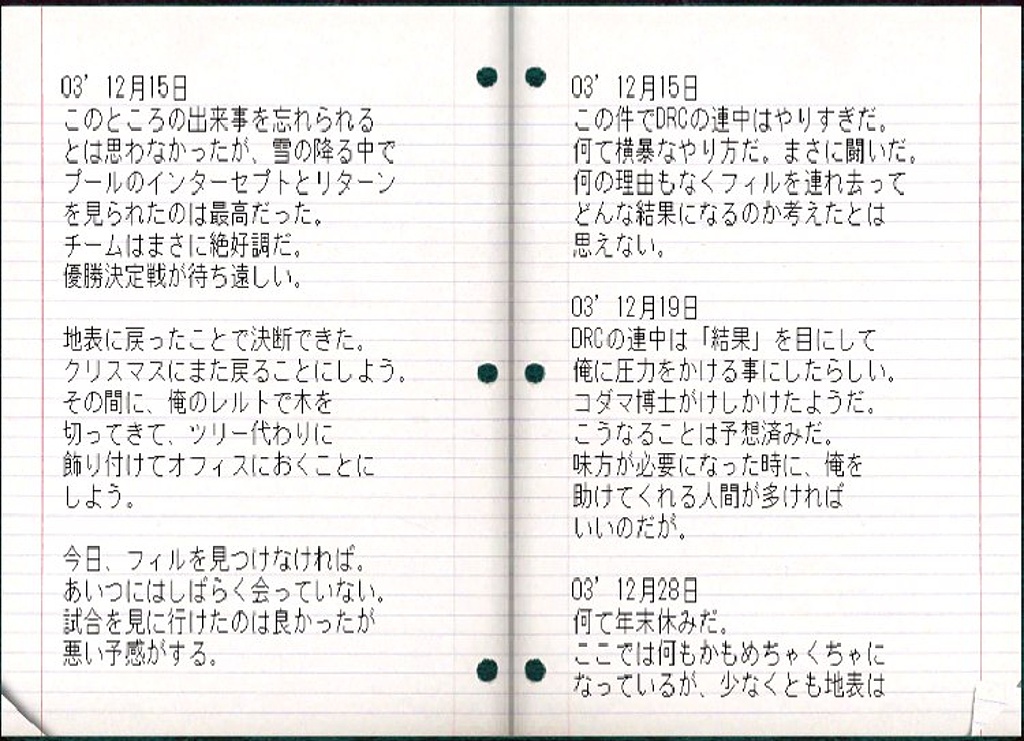 03’ 12月15日
このところの出来事を忘れられる
とは思わなかったが、雪の降る中で
プールのインターセプトとリターン
を見られたのは最高だった。
チームはまさに絶好調だ。
優勝決定戦が待ち遠しい。
地表に戻ったことで決断できた。
クリスマスにまた戻ることにしよう。
その間に、俺のレルトで木を
切ってきて、ツリー代わりに
飾り付けてオフィスにおくことに
しよう。
今日、フィルを見つけなければ。
あいつにはしばらく会っていない。
試合を見に行けたのは良かったが
悪い予感がする。
03’ 12月15日
この件でDRCの連中はやりすぎだ。
何て横暴なやり方だ。まさに闘いだ。
何の理由もなくフィルを連れ去って
どんな結果になるのか考えたとは
思えない。
03’ 12月19日
DRCの連中は「結果」を目にして
俺に圧力をかける事にしたらしい。
コダマ博士がけしかけたようだ。
こうなることは予想済みだ。
味方が必要になった時に、俺を
助けてくれる人間が多ければ
いいのだが。
03’ 12月28日
何て年末休みだ。
ここでは何もかもめちゃくちゃに
なっているが、少なくとも地表は